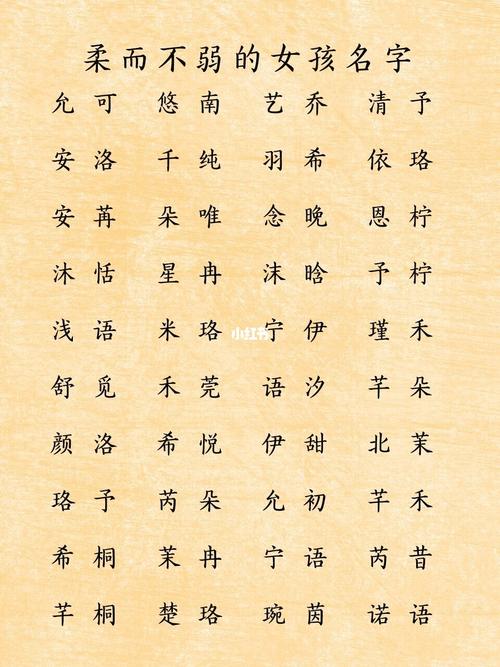 柔而不弱的女孩名字
允可 悠南 艺乔 清予
安洛 千纯 羽希 依珞
安苒 朵唯 念晚 恩柠
沐恬 星冉 沫晗 予柠
浅语 米珞 宁伊 瑾禾
小红书
舒觅 禾莞 语汐 芊朵
颜洛 希悦 伊甜 北茉
珞予 芮朵 允初 芊禾
希桐 茉冉 宁语 芮昔
芊桐 楚珞 琬茵 诺语